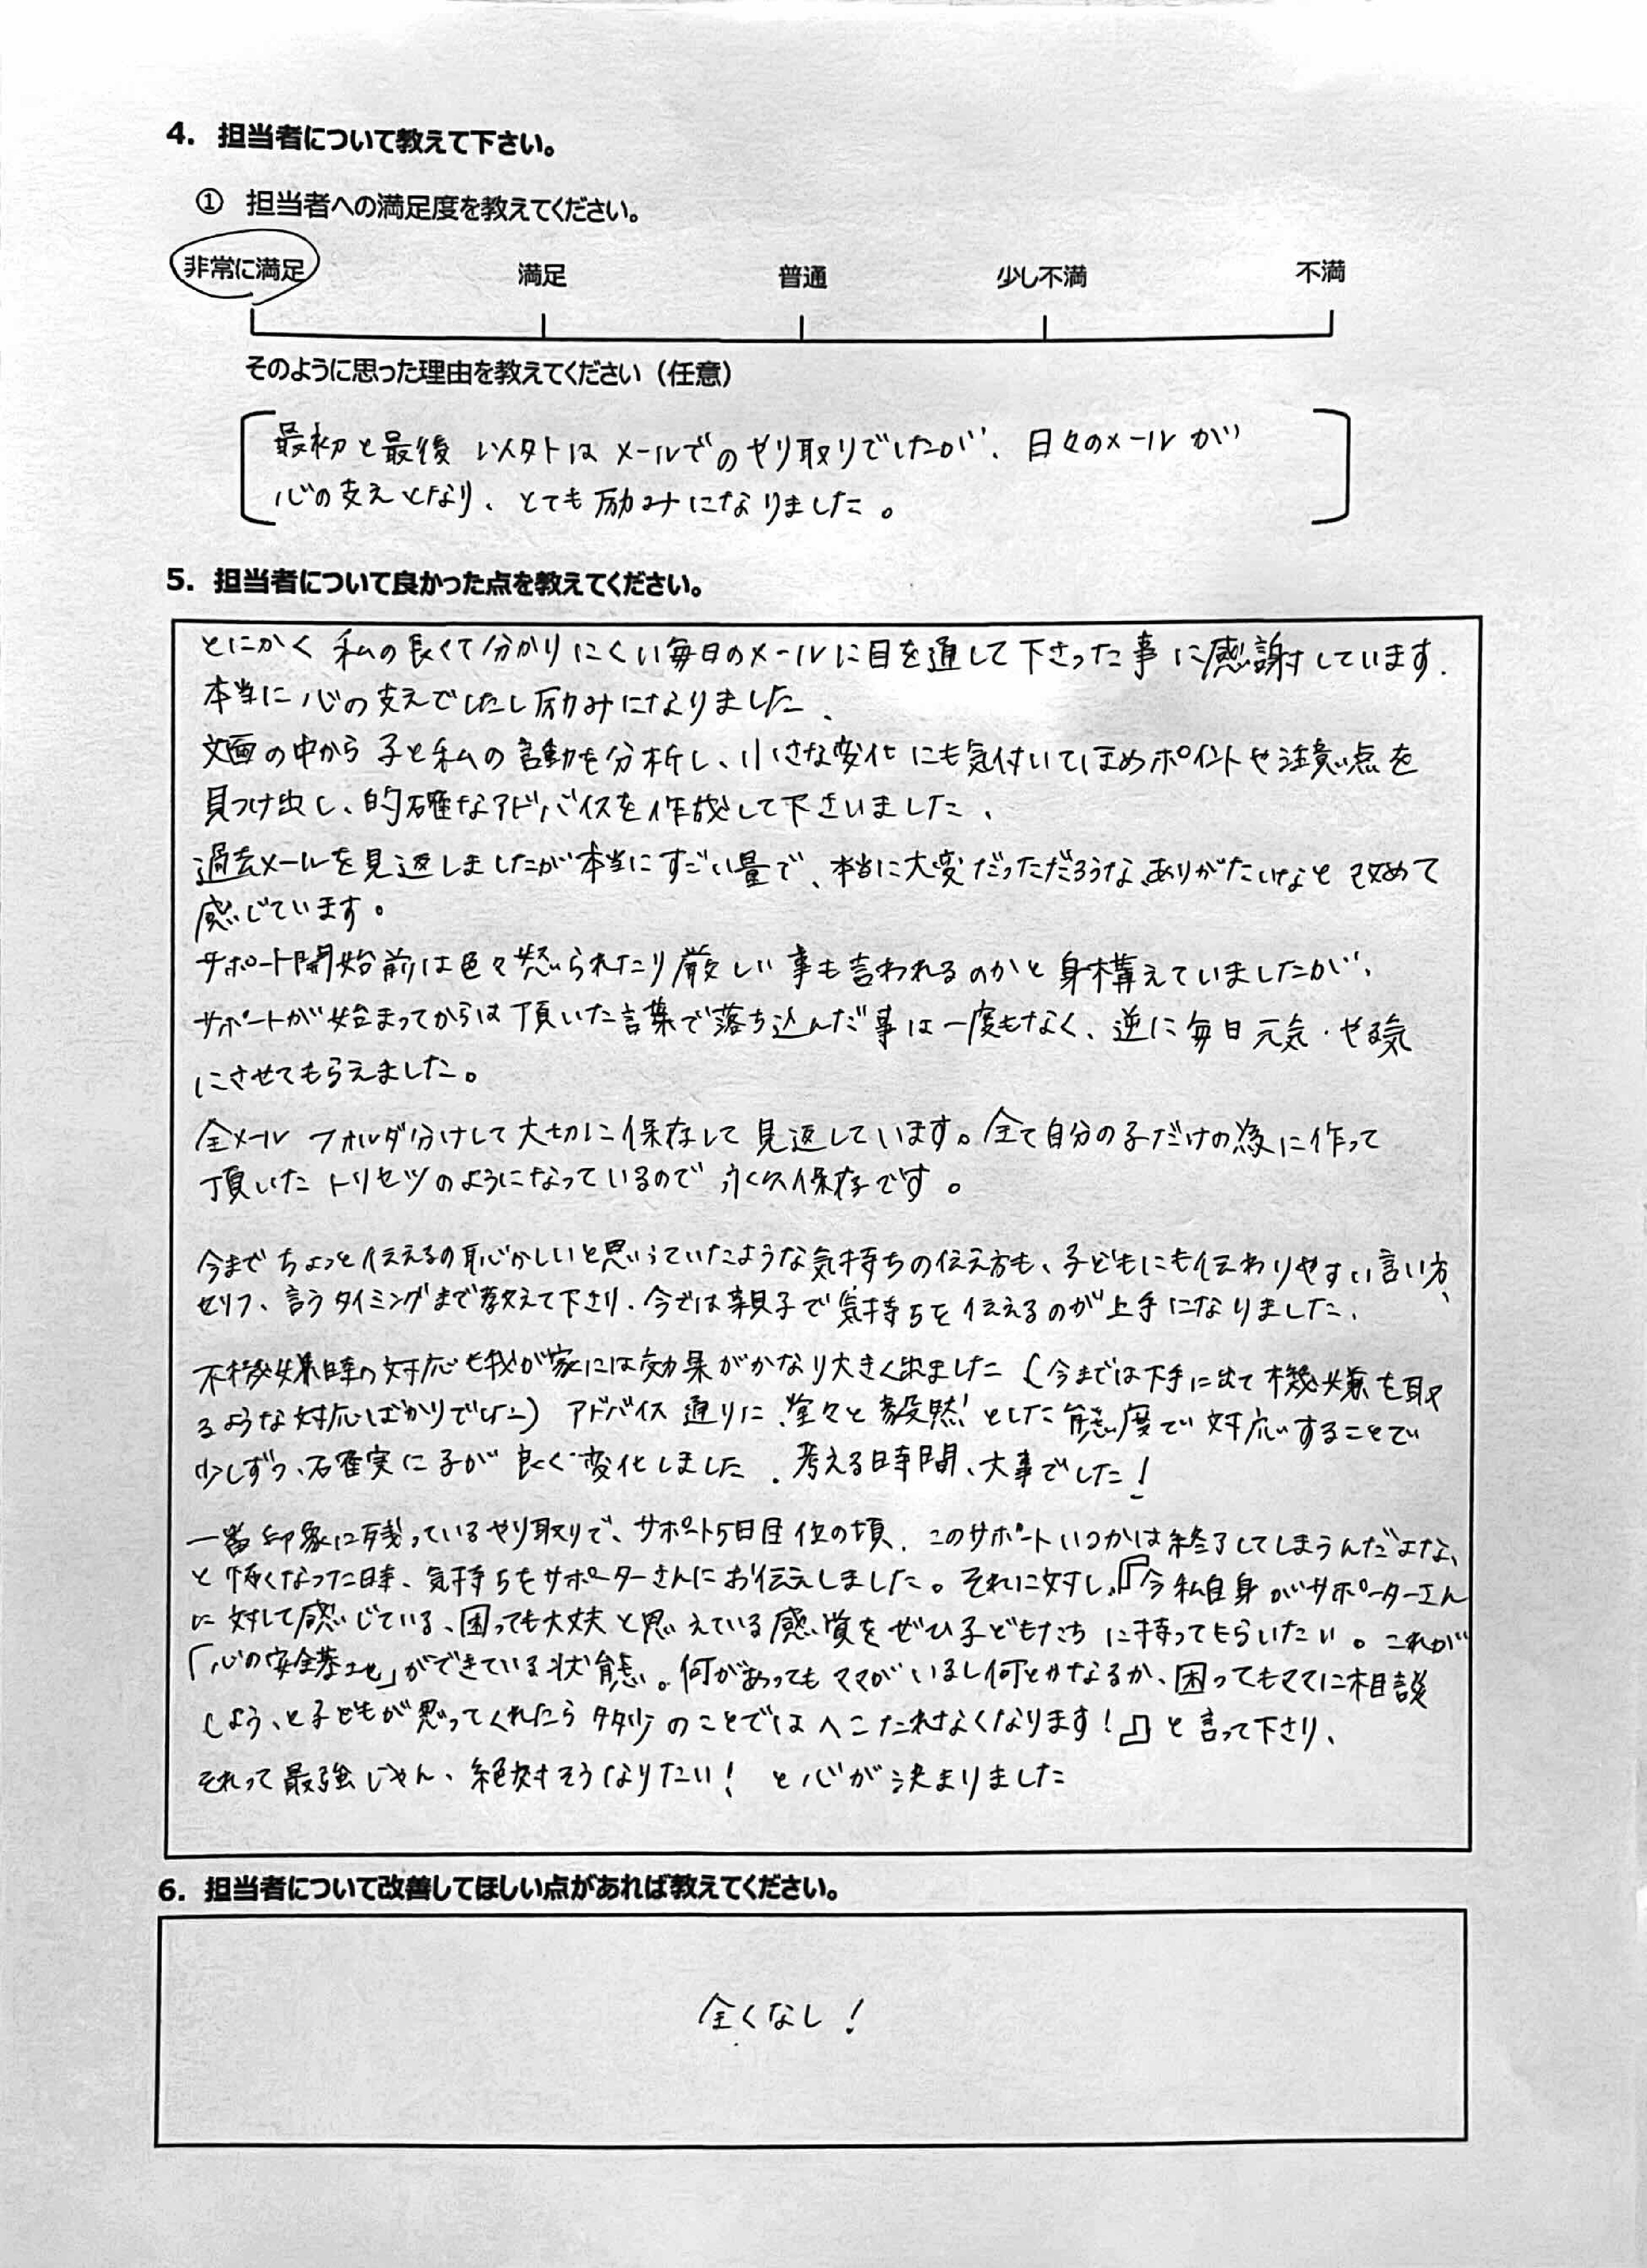 4. 担当者について教えて下さい。
① 担当者への満足度を教えてください。
非常に満足 満足 普通 少し不満 不満
そのように思った理由を教えてください（任意）
最初と最後 以外は メールでのやり取りでしたが、日々のメールが
心の支えとなり、とても励みになりました。
5. 担当者について良かった点を教えてください。
とにかく 私の長くて分かりにくい毎日のメールに目を通して下さった事に感謝しています.
本当に心の支えでしたし励みになりました、
文面の中から 子と私の言動を分析し、小さな変化にも気付いてほめポイントや注意点を
見つけ出し、的確なアドバイスを作成して下さいました、
過去メールを見返しましたが本当にすごい量で、本当に大変だっただろうな、ありがたいなと改めて
感じています。
サポート開始前は色々怒られたり厳しい事も言われるのかと身構えていましたが、
サポートが始まってからは頂いた言葉で落ち込んだ事は一度もなく、逆に毎日元気・やる気
にさせてもらえました。
全メール フォルダ分けして大切に保存して見返しています。全て自分の子だけの為に作って
頂いた トリセツのようになっているので 永久保存です。
今まで ちょっと伝えるの恥ずかしいと思っていたような気持ちの伝え方も、子どもにも伝わりやすい言い方、
セリフ、言うタイミングまで教えて下さり、今では親子で気持ちを伝えるのが上手になりました、
不機嫌時の対応も我が家には効果がかなり大きく出ました（今までは下手に出て機嫌を取
るような対応ばかりでした）アドバイス通りに、堂々と毅然とした態度で対応することで
少しずつ、確実に子が良く変化しました. 考える時間、大事でした！
一番印象に残っているやり取りで、サポート5日目位の頃、このサポートいつかは終了してしまうんだよな、
と怖くなった時、気持ちをサポーターさんにお伝えしました。それに対し、『今私自身がサポーターさん
に対して感じている、困っても大丈夫と思えている感覚をぜひ子どもたちに持ってもらいたい。これが
「心の安全基地」ができている状態。何があってもママがいるし何とかなるか、困ってもママに相談
しよう、と子どもが思ってくれたら多少のことではへこたれなくなります！』と言って下さり、
それって最強じゃん、絶対そうなりたい！ と心が決まりました
6. 担当者について改善してほしい点があれば教えてください。
全くなし！